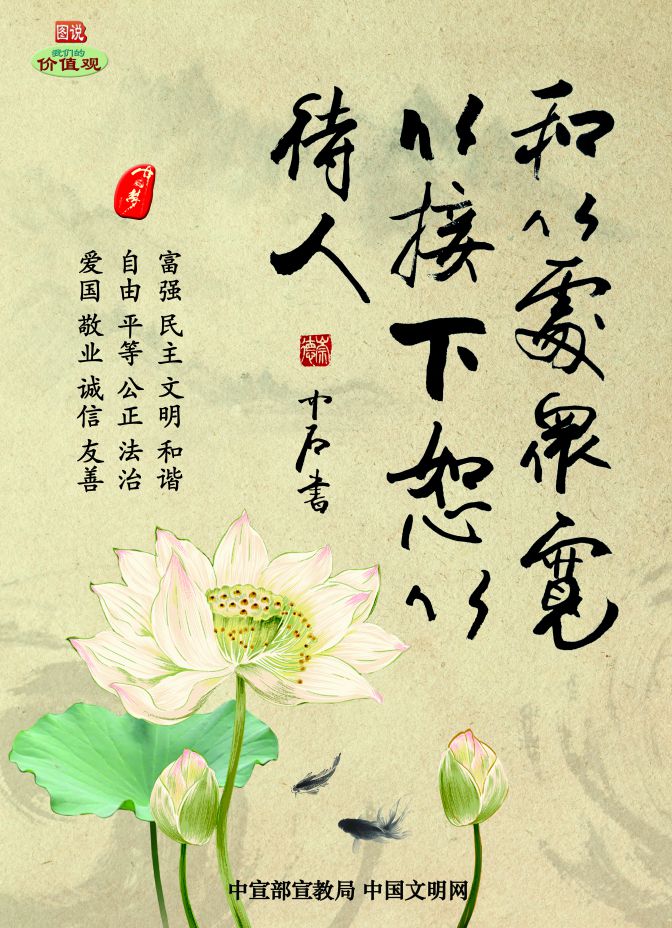 图说
我们的
价值观
和以處眾寬
以接下恕以
待人
崇德
中石書
中国梦
富强 民主 文明 和谐
自由 平等 公正 法治
爱国 敬业 诚信 友善
中宣部宣教局 中国文明网